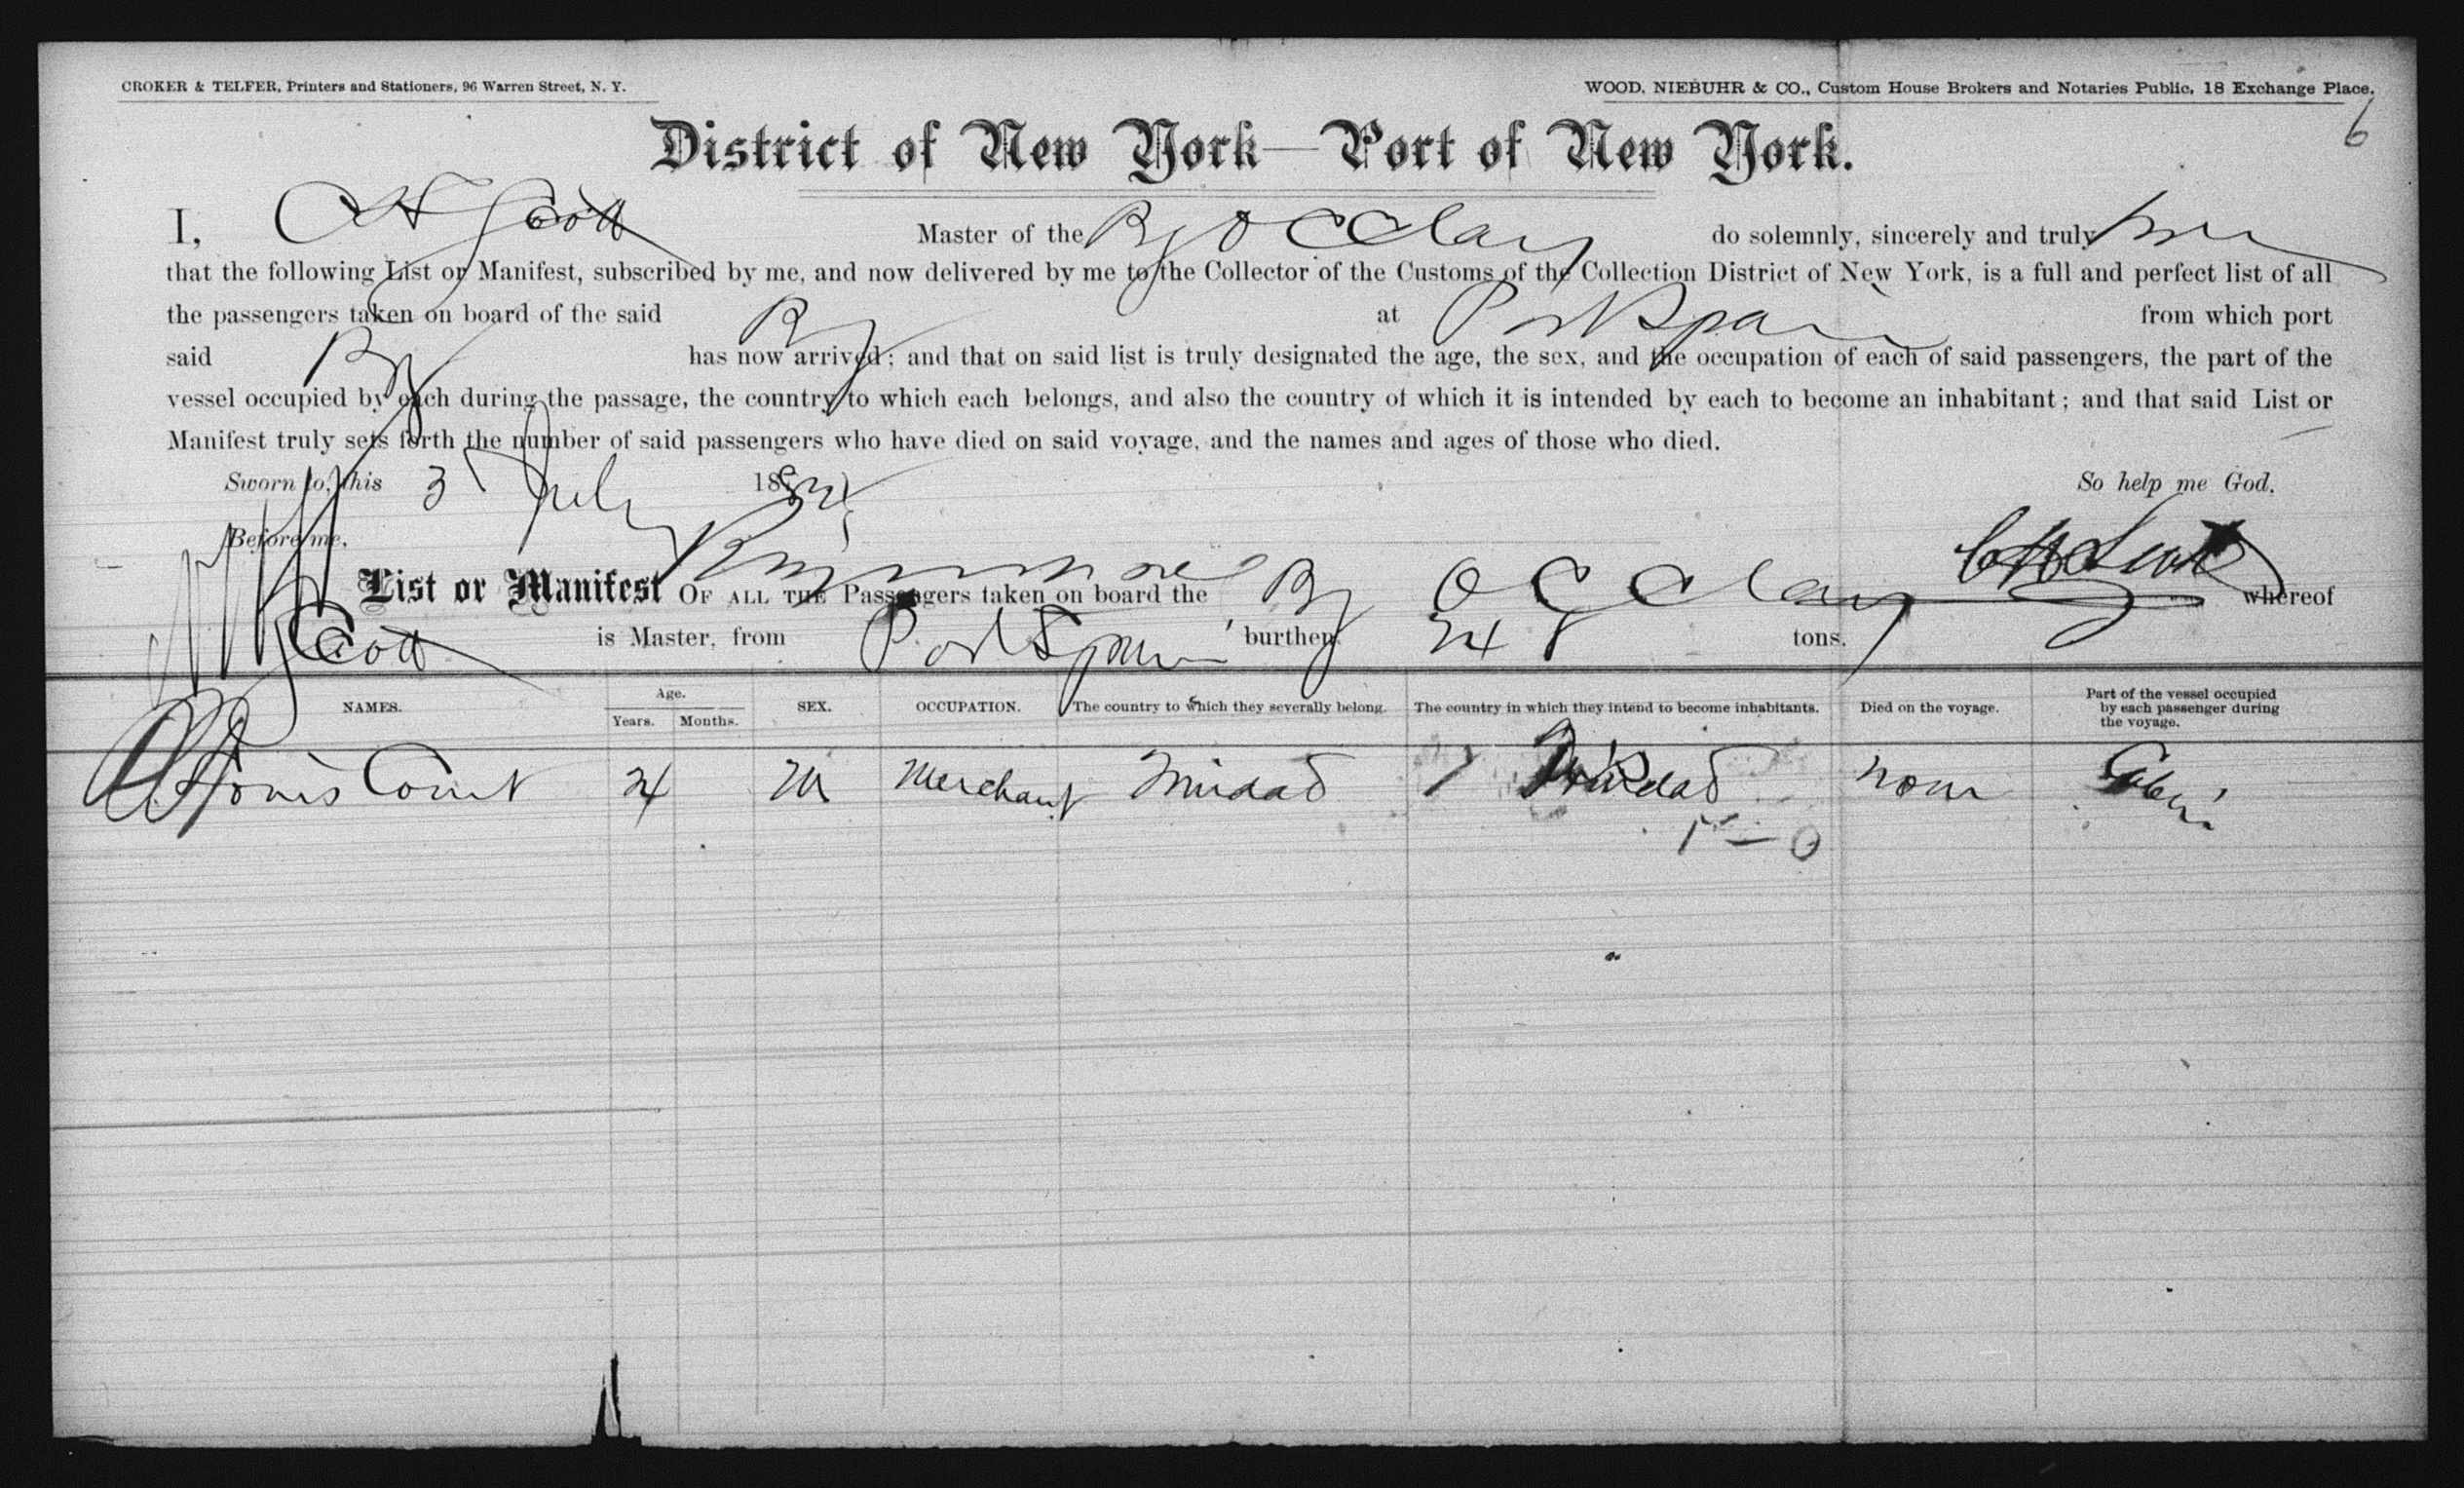 CROKER & TELFER, Printers and Stationers, 96 Warren Street, N. Y.
WOOD, NIEBUHR & CO., Custom House Brokers and Notaries Public, 18 Exchange Place.
6
District of New York—Port of New York.
I, C H Scott Master of the Bg O C Clary do solemnly, sincerely and truly swear
that the following List or Manifest, subscribed by me, and now delivered by me to the Collector of the Customs of the Collection District of New York, is a full and perfect list of all
the passengers taken on board of the said Bg at Port Spain from which port
said Bg has now arrived; and that on said list is truly designated the age, the sex, and the occupation of each of said passengers, the part of the
vessel occupied by each during the passage, the country to which each belongs, and also the country of which it is intended by each to become an inhabitant; and that said List or
Manifest truly sets forth the number of said passengers who have died on said voyage, and the names and ages of those who died.
Sworn to, this 3 July 188 So help me God.
Before me, C H Scott
List or Manifest OF ALL THE Passengers taken on board the Bg O C Clary whereof
Scott is Master, from Port Spain burthen, 348 tons.
NAMES. Age. Years. Months. SEX. OCCUPATION. The country to which they severally belong. The country in which they intend to become inhabitants. Died on the voyage. Part of the vessel occupied by each passenger during the voyage.
24 M Merchant Trinidad Trinidad none Cabin
1 — 0